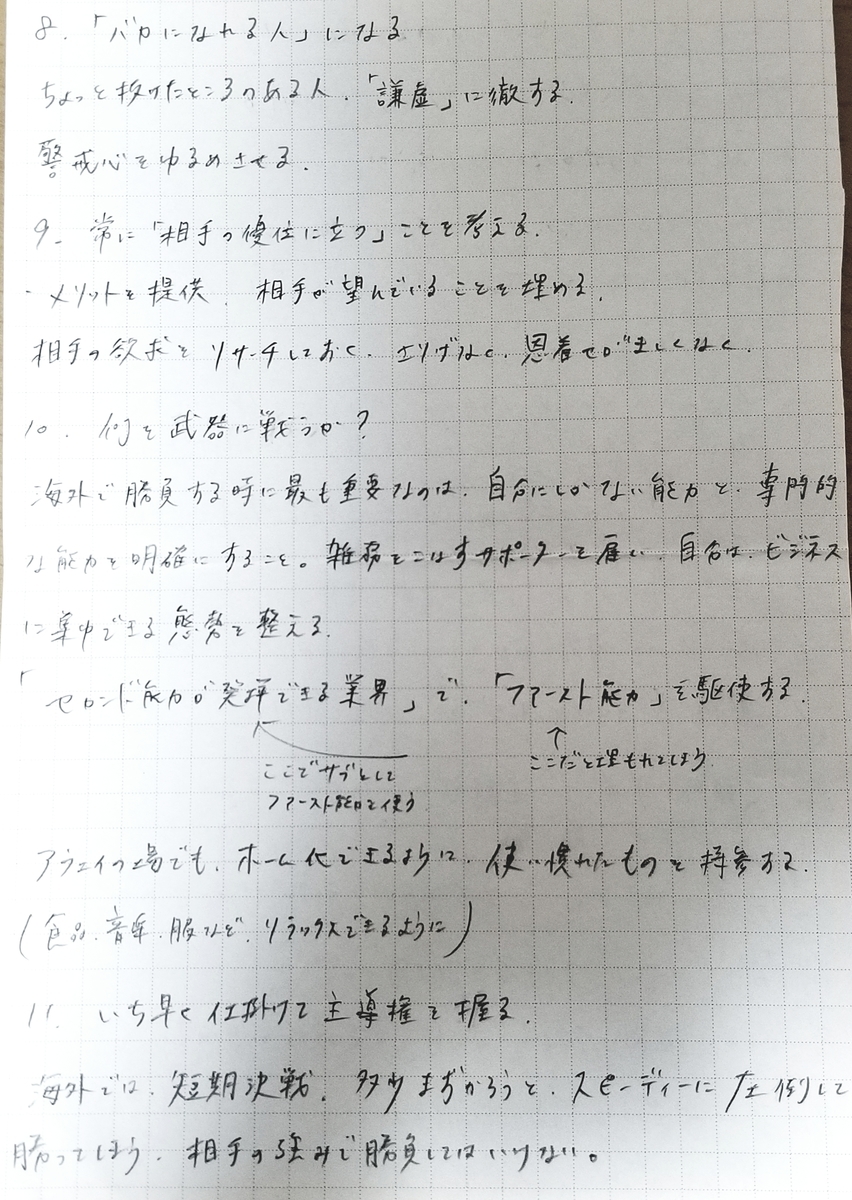 8. 「バカになれる人」になる
ちょっと抜けたところのある人、「謙虚」に徹する。
警戒心をゆるめさせる。
9. 常に「相手の優位に立つ」ことを考える。
・メリットを提供、相手が望んでいることを埋める。
相手の欲求をリサーチしておく、さりげなく、恩着せがましくなく、
10. 何を武器に戦うか?
海外で勝負する時に最も重要なのは、自分にしかない能力と、専門的
な能力を明確にすること。雑務をこなすサポーターを雇い、自分は、ビジネス
に集中できる態勢を整える。
「セカンド能力が発揮できる業界」で、「ファースト能力」を駆使する。
ここでサブとして
ファースト能力を使う
↑
ここだと埋もれてしまう
アウェイの場でも、ホーム化できるように、使い慣れたものを持参する。
(食品、音楽、服など、リラックスできるように)
11. いち早く仕掛けて主導権を握る。
海外では、短期決戦、多少まずかろうと、スピーディーに圧倒して
勝ってしまう、相手の強みで勝負してはいけない。